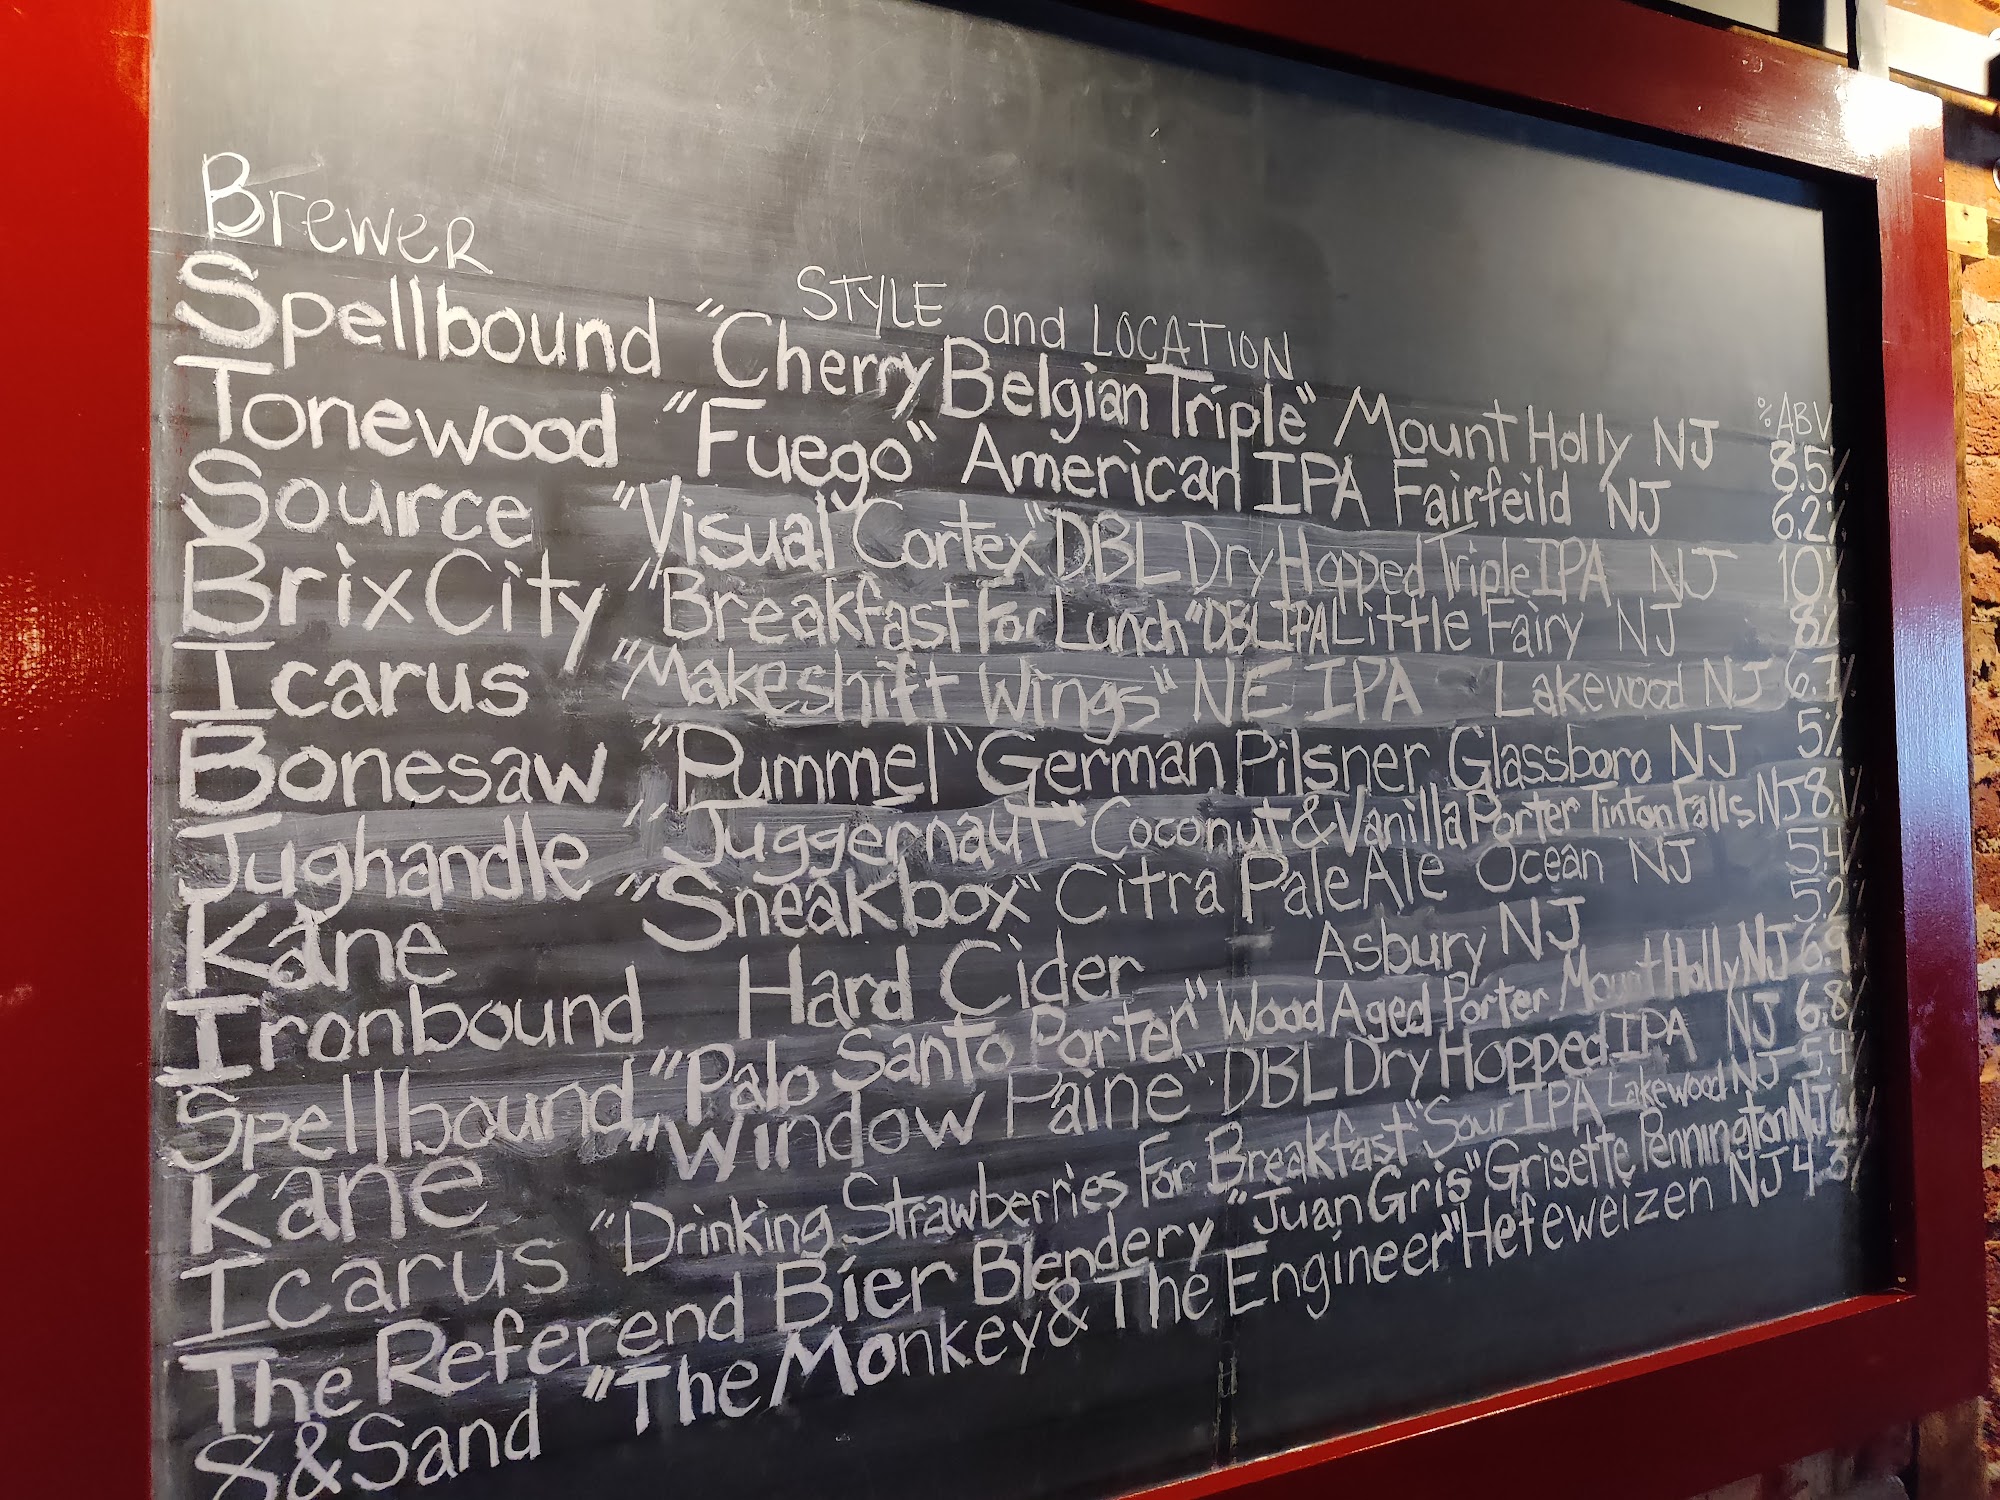 Brewer
STYLE and LOCATION
% ABV
Spellbound "Cherry Belgian Triple" Mount Holly NJ 8.5%
Tonewood "Fuego" American IPA Fairfeild NJ 6.2%
Source "Visual Cortex" DBL Dry Hopped Triple IPA NJ 10%
Brix City "Breakfast For Lunch" DBL IPA Little Fairy NJ 8%
Icarus "Makeshift Wings" NE IPA Lakewood NJ 6.7%
Bonesaw "Pummel" German Pilsner Glassboro NJ 5%
Jughandle "Juggernaut" Coconut & Vanilla Porter Tinton Falls NJ 8.1%
Kane "Sneakbox" Citra Pale Ale Ocean NJ 5.4%
Ironbound Hard Cider Asbury NJ 5.2%
Spellbound "Palo Santo Porter" Wood Aged Porter Mount Holly NJ 6.9%
Kane "Window Paine" DBL Dry Hopped IPA NJ 6.8%
Icarus "Drinking Strawberries For Breakfast" Sour IPA Lakewood NJ 5.4%
The Referend Bier Blendery "Juan Gris" Grisette Pennington NJ
8 & Sand "The Monkey & The Engineer" Hefeweizen NJ 4.3%